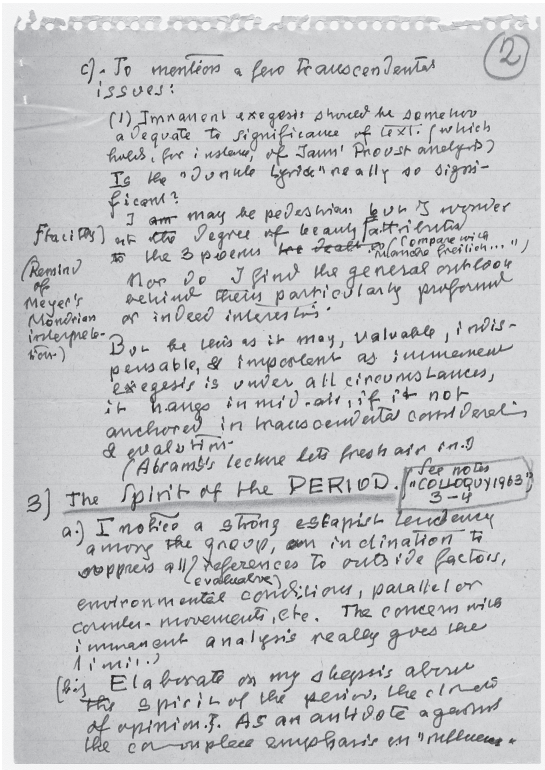 2
c). To mention a few transcendental
issues:
(1) Immanent exegesis should be somehow
adequate to significance of text. (which
holds, for instance, of Jauss' Proust analysis)
Is the "Dunkle Lyrik" really so signi-
ficant?
I am may be pedestrian but I wonder
at the degree of beauty
to the 3 poems (Compare with
Nor do I find the general outlook
behind them particularly profound
or indeed interesting.
(Remind
of
Meyer's
Mondrian
interpreta-
tion)
But be this as it may, valuable, indis-
pensable, & important as immanent
exegesis is under all circumstances,
it hangs in mid-air, if it not
anchored in transcendental
& evaluation.
(Abrams's lecture lets fresh air in.)
3) The Spirit of the PERIOD.
See notes
"COLLOQUY 1963"
3-4
a.) I notice a strong escapist tendency
among the group, an inclination to
suppress all references to outside factors,
(evaluative)
environmental conditions, parallel or
counter-movements, etc. The concern with
immanent analysis really gives the
limit.)
(b.) Elaborate on my skepsis about
the spirit of the period, the climate
of opinion. As an antidote against
the complete emphasis on "influence"